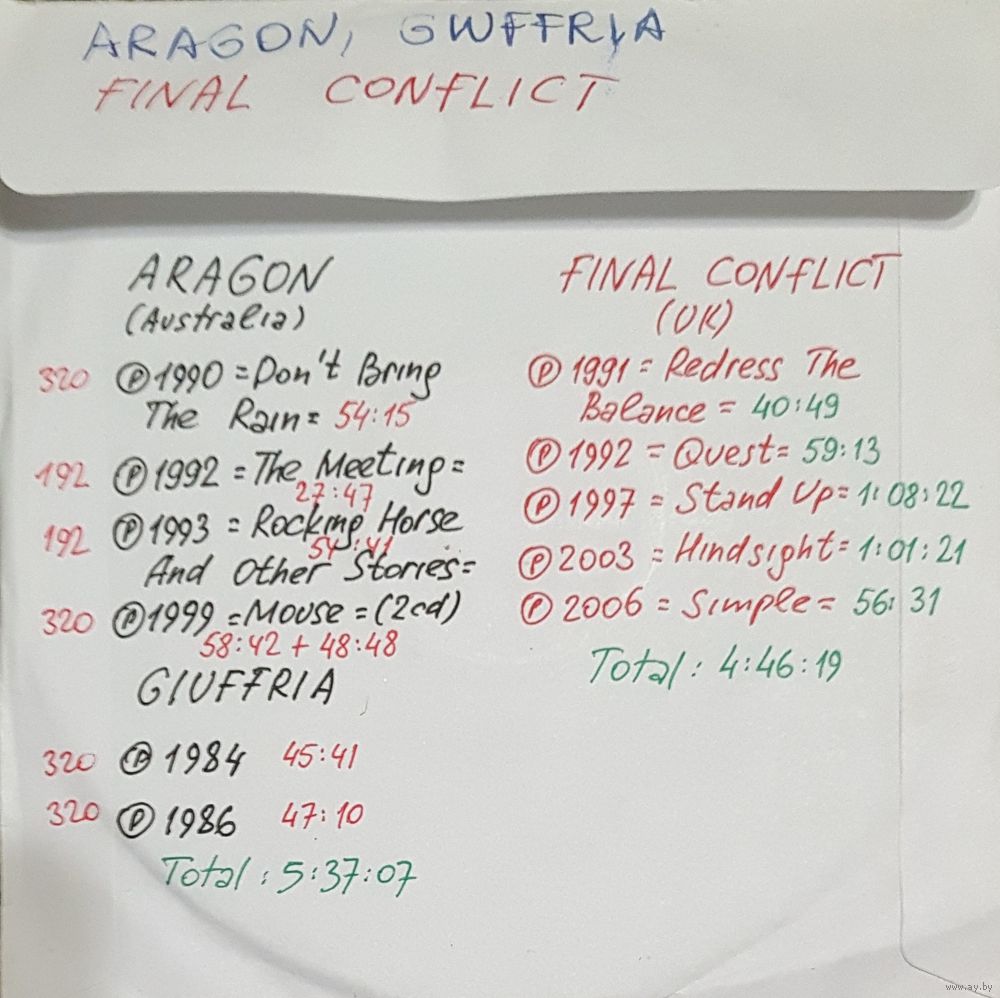 ARAGON, GWFFRIA
FINAL CONFLICT
ARAGON
(Australia)
320 Ⓟ 1990 = Don't Bring
The Rain = 54:15
192 Ⓟ 1992 = The Meeting =
27:47
192 Ⓟ 1993 = Rocking Horse
54:41
And Other Stories =
320 Ⓟ 1999 = Mouse = (2cd)
58:42 + 48:48
GIUFFRIA
320 Ⓟ 1984 45:41
320 Ⓟ 1986 47:10
Total: 5:37:07
FINAL CONFLICT
(UK)
Ⓟ 1991 = Redress The
Balance = 40:49
Ⓟ 1992 = Quest = 59:13
Ⓟ 1997 = Stand Up = 1:08:22
Ⓟ 2003 = Hindsight = 1:01:21
Ⓟ 2006 = Simple = 56:31
Total: 4:46:19
www.ay.by